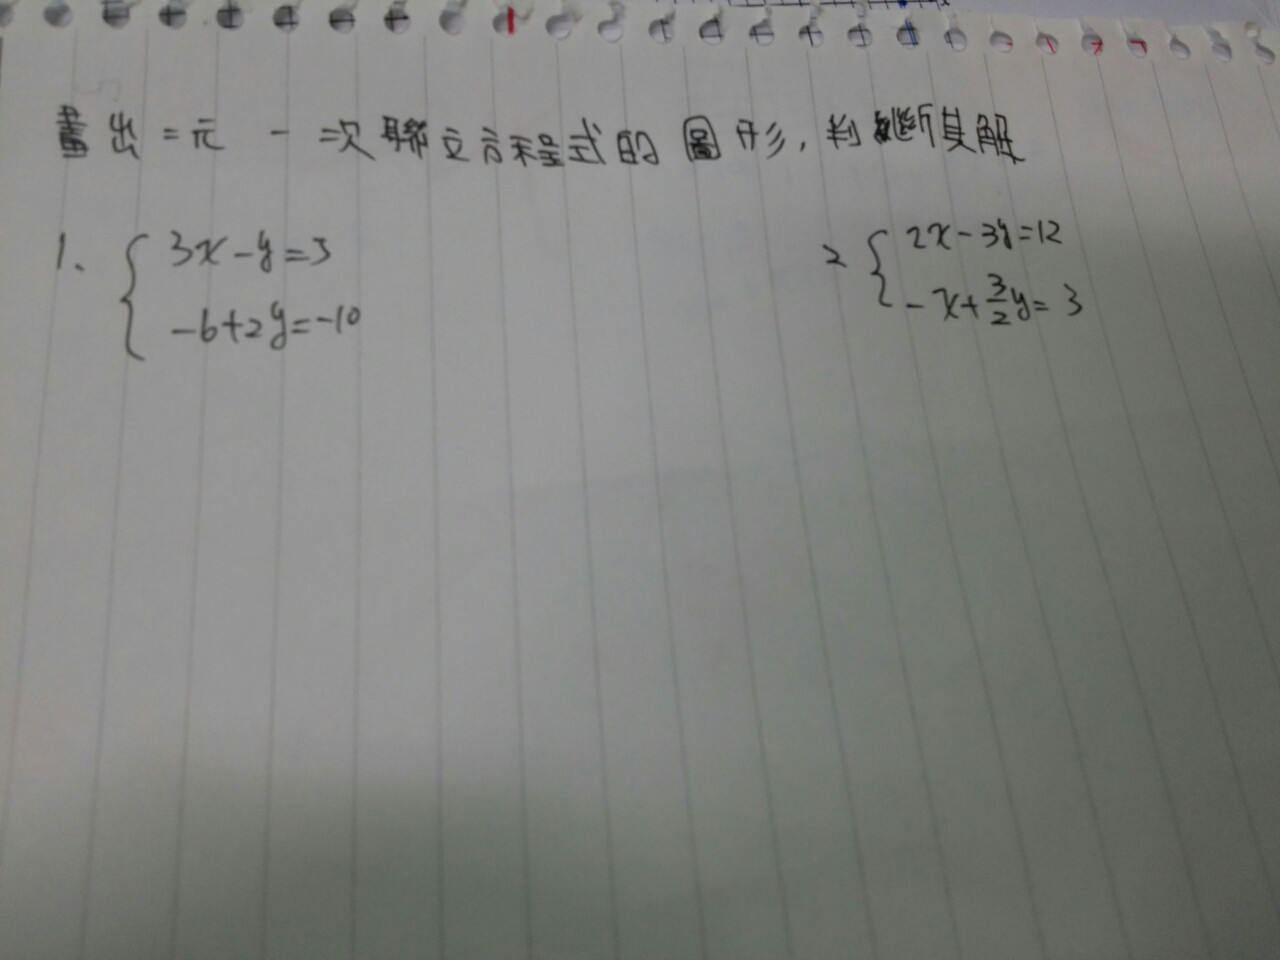 畫出二元一二次聯立方程式的圖形,判斷其解
1、 { 3x-y=5
-6+2y=-10
2 { 2x-3y=12
-x+3/2y=3